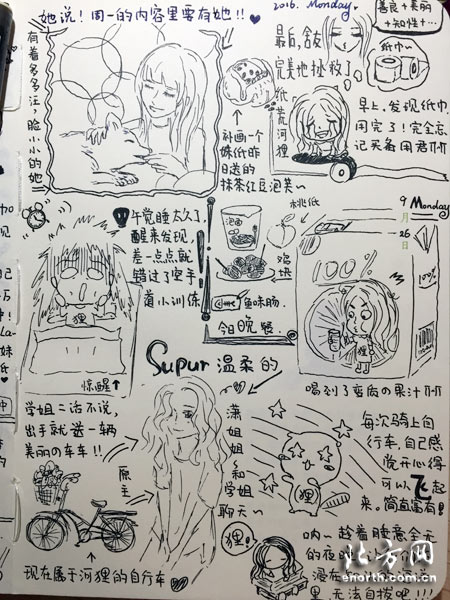 她说！周一的内容里要有她!!
有着多多汪，脸小小的她
2016. Monday.
善良+美丽
+知性+…
最后，舍友
完美地拯救了
纸荒河狸
纸巾~
早上，发现纸巾
用完了！完全忘
记买备用君
补画一个
妹纸昨
日送的
抹茶红豆泡芙~
9月26日
Monday
午觉睡太久了，
醒来发现，
差一点点就
错过了空手
道小训练
狸
惊醒↑
泡面
桃纸
鸡块
鱼味肠
今日晚餐
100%
100%
喝到了蛮夯の果汁
Supur温柔的
学姐二话不说，
出手就送一辆
美丽の车车!!
原主
潇姐姐和学姐聊天~
狸
每次骑上自
行车，自己感
觉开心得
可以飞起
来。简直
现在属于河狸的自行车
狸!
呐~趁着睡意全无
的夜晚
里，无法自拔吧!!!
北方网
enorth.com.cn